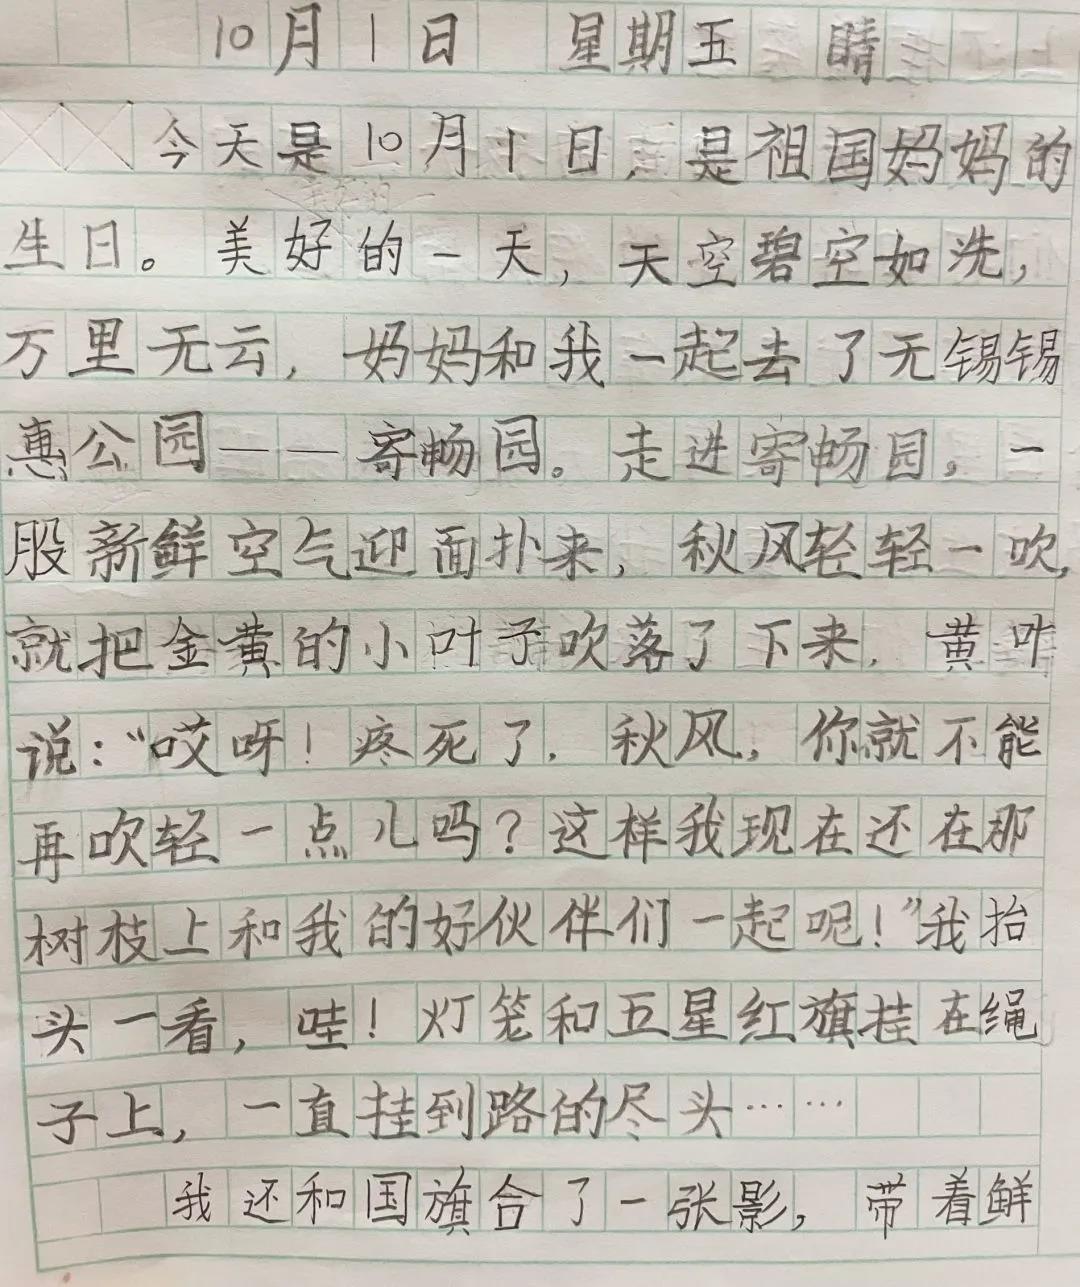 10月1日 星期五 晴
今天是10月1日,是祖国妈妈的
生日。美好的一天,天空碧空如洗,
万里无云,妈妈和我一起去了无锡锡
惠公园——寄畅园。走进寄畅园,一
股新鲜空气迎面扑来,秋风轻轻一吹,
就把金黄的小叶子吹落了下来,黄叶
说:“哎呀!疼死了,秋风,你就不能
再吹轻一点儿吗?这样我现在还在那
树枝上和我的好伙伴们一起呢!”我抬
头一看,哇!灯笼和五星红旗挂在绳
子上,一直挂到路的尽头……
我还和国旗合了一张影,带着鲜